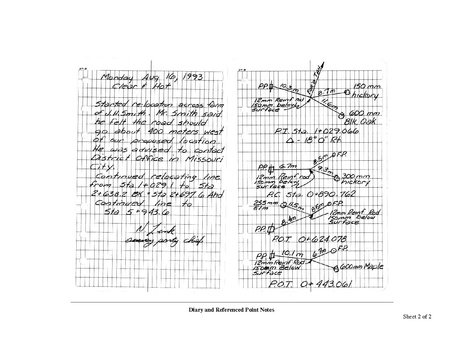 Monday Aug. 16, 1993
Clear & Hot
Started relocation across farm
of J.H. Smith. Mr. Smith said
he felt the road should
go about 400 meters west
of our proposed location
He was advised to contact
District Office in Missouri
City.
Continued relocating line
from Sta. 1+029.1 to Sta
2+658.2 BK = Sta 2+697.6 Ahd
Continued line to
Sta 5+943.6
survey party chief
PP 10.3m
8.7m
150 mm
hickory
12mm Reinf rod
150mm below
surface
11.6m
600 mm
Blk. Oak
P.I. Sta. 1+029.066
Δ - 18° 0' Rt.
PP 6.7m
8.5m F.P.
9.3m
300 mm
hickory
12mm Reinf rod
150mm below
surface
P.C. Sta. 0+890.762
11.5m
F.P.
8.4m
12mm Reinf Rod
150mm below
surface
PP
P.O.T. 0+624.078
PP 10.1m
6.9m F.P.
12mm Reinf Rod
150mm Below
surface
600mm Maple
P.O.T. 0+443.061
Diary and Referenced Point Notes
Sheet 2 of 2